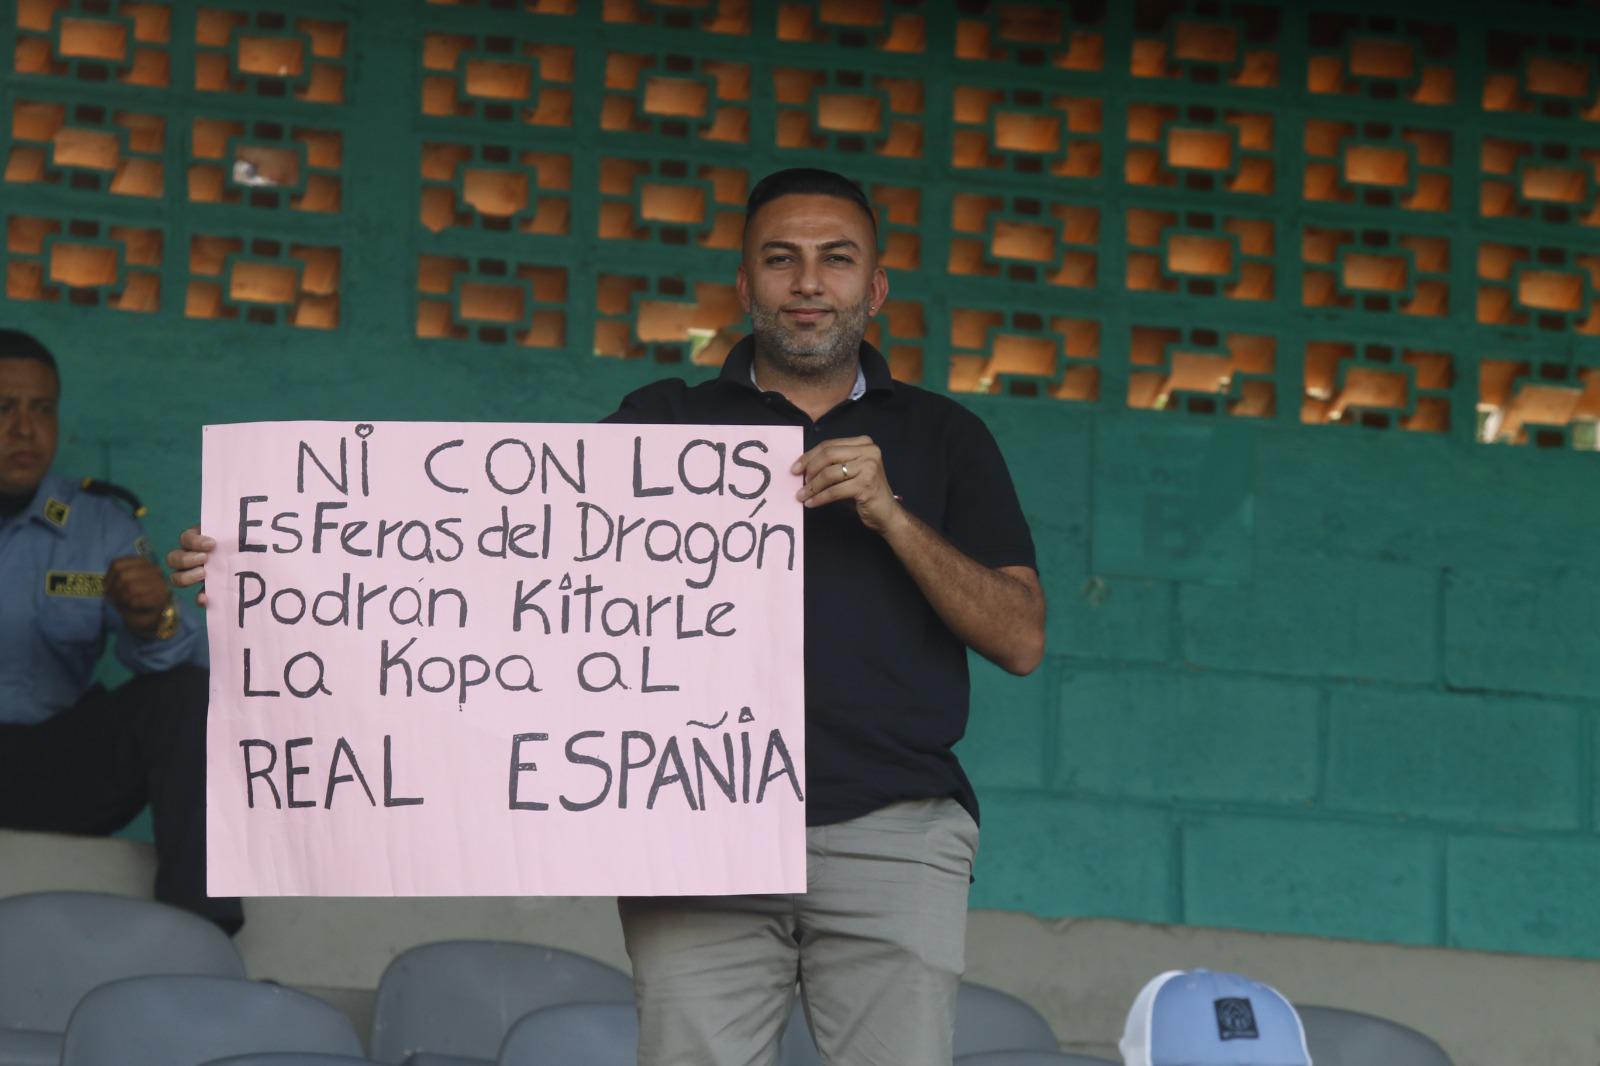 Ni CON Las
EsFeras del Dragón
Podrán KitarLe
La Kopa aL
REAL ESPAÑiA